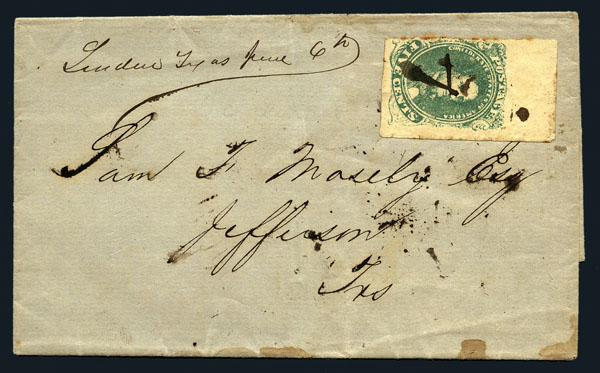 Linden Texas June 6th
POSTAGE
CONFEDERATE STATES OF AMERICA
FIVE CENTS
Sam F. Mosely Esq
Jefferson
Txs